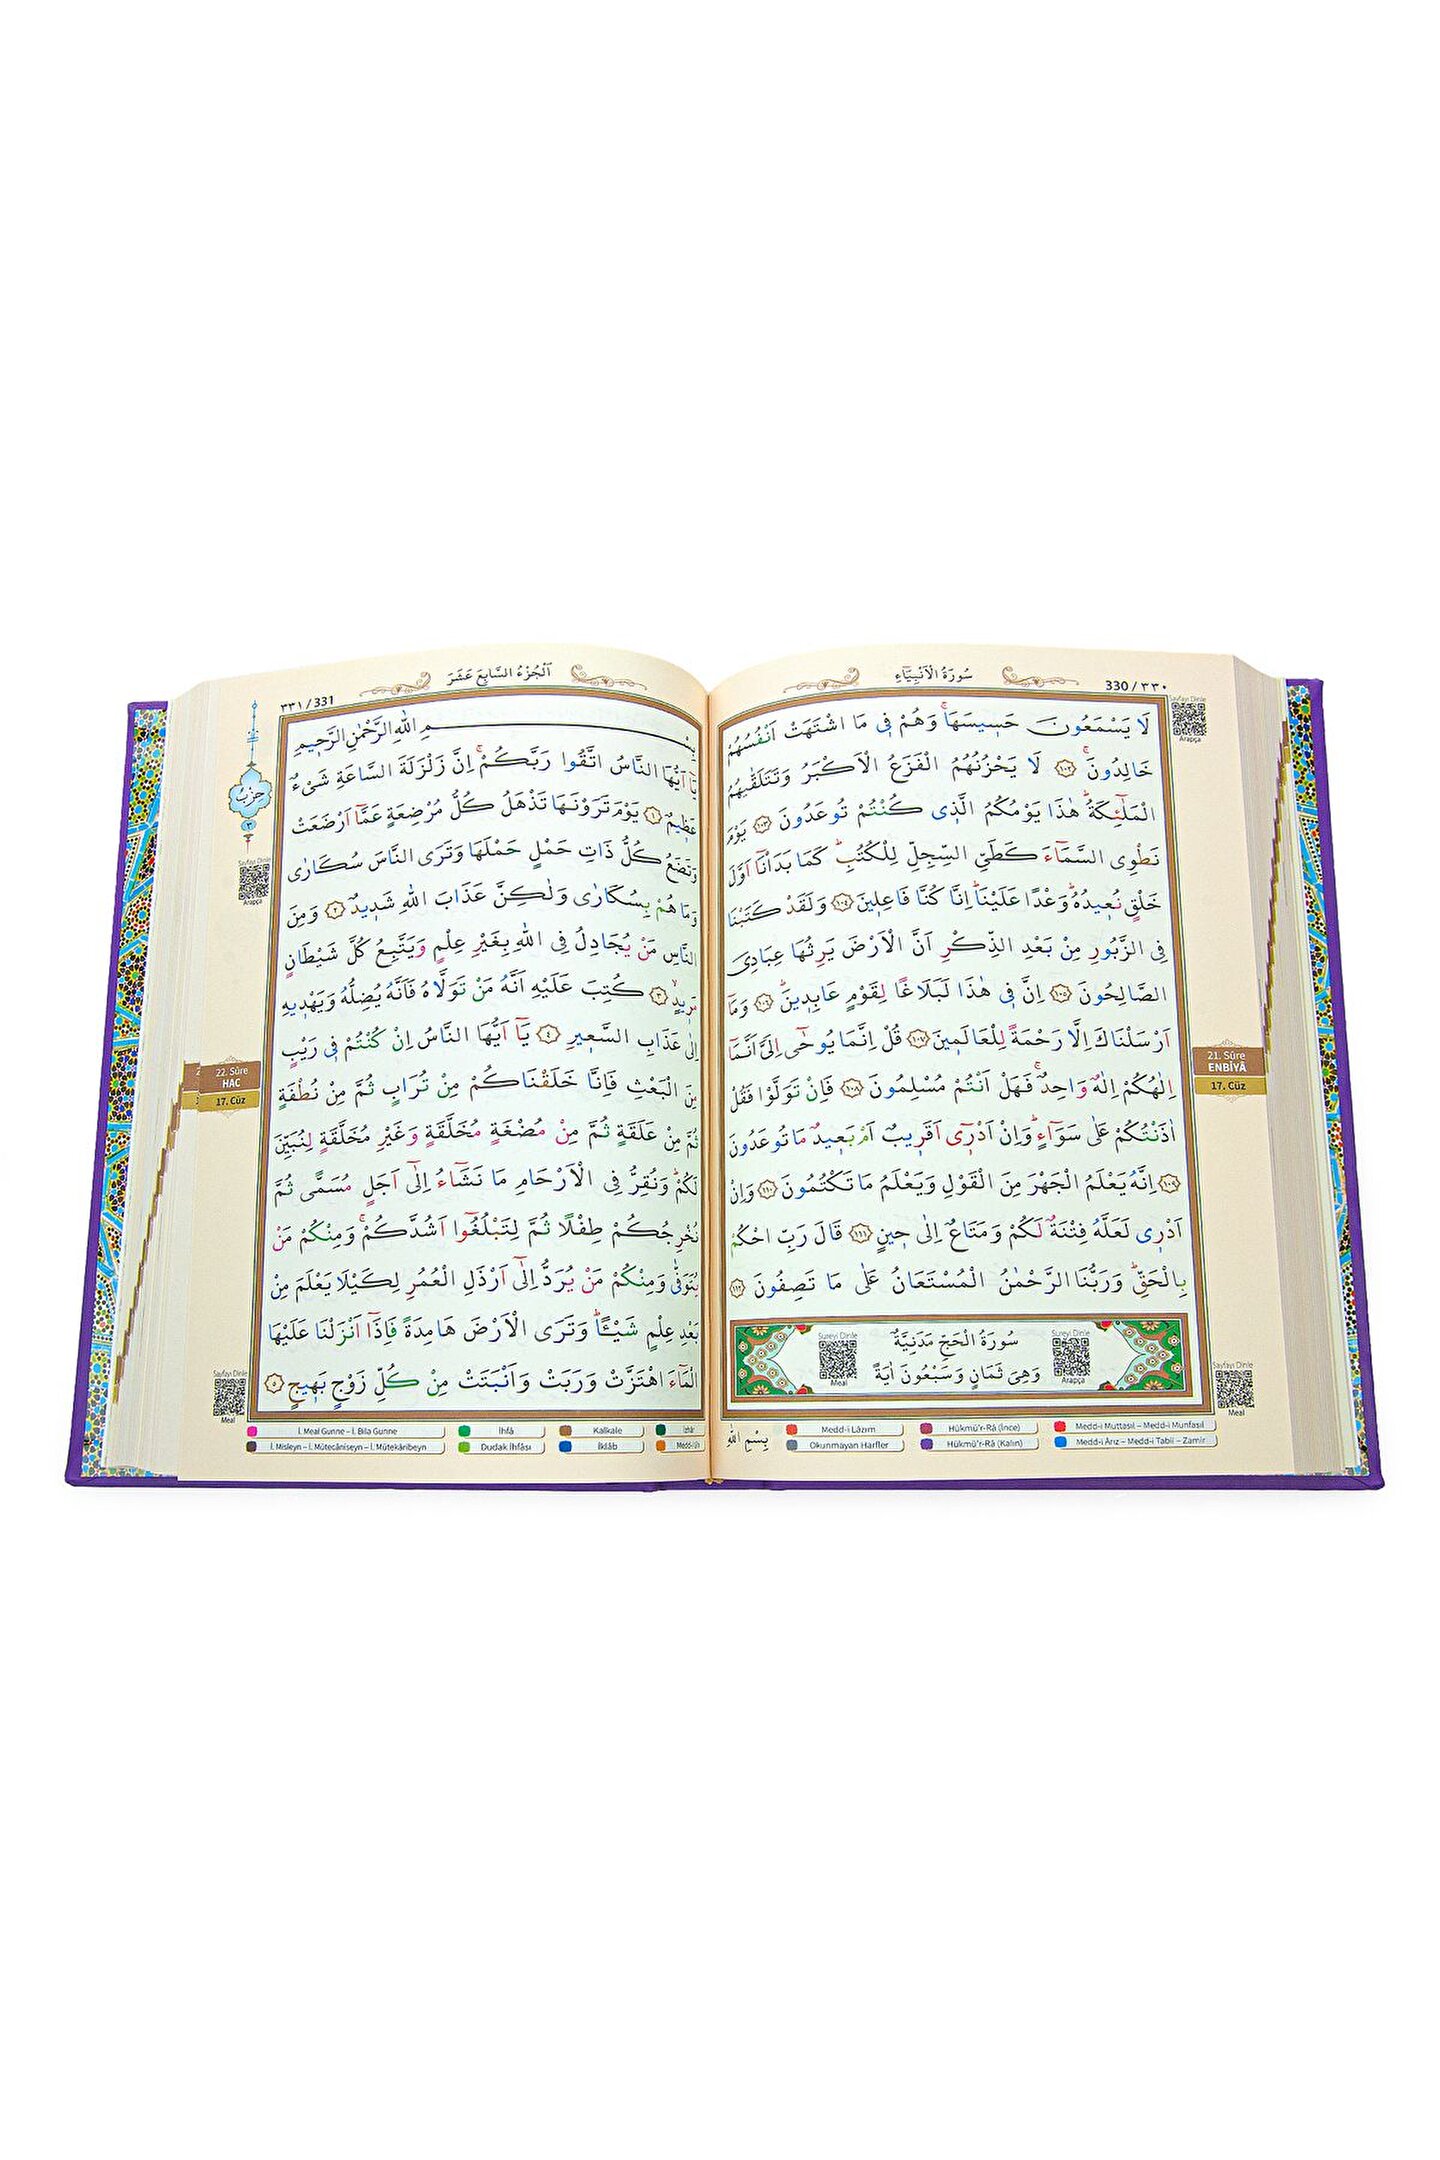 330 / ٣٣٠
سُورَةُ الْاَنْبِيَٓاءِ
Sayfayı Dinle
Arapça
لَا يَسْمَعُونَ حَسٖيسَهَاۚ وَهُمْ فٖى مَا اشْتَهَتْ اَنْفُسُهُمْ
خَالِدُونَۚ ﴿١٠٢﴾ لَا يَحْزُنُهُمُ الْفَزَعُ الْاَكْبَرُ وَتَتَلَقّٰيهُمُ
الْمَلٰٓئِكَةُۜ هٰذَا يَوْمُكُمُ الَّذٖى كُنْتُمْ تُوعَدُونَ ﴿١٠٣﴾ يَوْمَ
نَطْوِى السَّمَٓاءَ كَطَىِّ السِّجِلِّ لِلْكُتُبِۜ كَمَا بَدَأْنَٓا اَوَّلَ
خَلْقٍ نُعٖيدُهُۜ وَعْدًا عَلَيْنَاۜ اِنَّا كُنَّا فَاعِلٖينَ ﴿١٠٤﴾ وَلَقَدْ كَتَبْنَا
فِى الزَّبُورِ مِنْ بَعْدِ الذِّكْرِ اَنَّ الْاَرْضَ يَرِثُهَا عِبَادِىَ
الصَّالِحُونَ ﴿١٠٥﴾ اِنَّ فٖى هٰذَا لَبَلَاغًا لِقَوْمٍ عَابِدٖينَۜ ﴿١٠٦﴾ وَمَٓا
اَرْسَلْنَاكَ اِلَّا رَحْمَةً لِلْعَالَمٖينَ ﴿١٠٧﴾ قُلْ اِنَّمَا يُوحٰٓى اِلَىَّ اَنَّمَٓا
اِلٰهُكُمْ اِلٰهٌ وَاحِدٌۚ فَهَلْ اَنْتُمْ مُسْلِمُونَ ﴿١٠٨﴾ فَاِنْ تَوَلَّوْا فَقُلْ
اٰذَنْتُكُمْ عَلٰى سَوَٓاءٍۜ وَاِنْ اَدْرٖٓى اَقَرٖيبٌ اَمْ بَعٖيدٌ مَا تُوعَدُونَ
﴿١٠٩﴾ اِنَّهُ يَعْلَمُ الْجَهْرَ مِنَ الْقَوْلِ وَيَعْلَمُ مَا تَكْتُمُونَ ﴿١١٠﴾ وَاِنْ
اَدْرٖى لَعَلَّهُ فِتْنَةٌ لَكُمْ وَمَتَاعٌ اِلٰى حٖينٍ ﴿١١١﴾ قَالَ رَبِّ احْكُمْ
بِالْحَقِّۜ وَرَبُّنَا الرَّحْمٰنُ الْمُسْتَعَانُ عَلٰى مَا تَصِفُونَ ﴿١١٢﴾
سُورَةُ الْحَجِّ مَدَنِيَّةٌ
وَهِىَ ثَمَانٍ وَسَبْعُونَ اٰيَةً
Sureyi Dinle
Arapça
Sureyi Dinle
Meal
Sayfayı Dinle
Meal
21. Sûre
ENBİYÂ
17. Cüz
بِسْمِ اللّٰهِ
Medd-i Lâzım
Hükmü'r-Râ (İnce)
Medd-i Muttasıl – Medd-i Munfasıl
Okunmayan Harfler
Hükmü'r-Râ (Kalın)
Medd-i Ârız – Medd-i Tabiî – Zamir
اَلْجُزْءُ السَّابِعَ عَشَرَ
٣٣١ / 331
بِسْـــــمِ اللّٰهِ الرَّحْمٰنِ الرَّحٖيمِ
يَٓا اَيُّهَا النَّاسُ اتَّقُوا رَبَّكُمْۚ اِنَّ زَلْزَلَةَ السَّاعَةِ شَىْءٌ
عَظٖيمٌ ﴿١﴾ يَوْمَ تَرَوْنَهَا تَذْهَلُ كُلُّ مُرْضِعَةٍ عَمَّٓا اَرْضَعَتْ
وَتَضَعُ كُلُّ ذَاتِ حَمْلٍ حَمْلَهَا وَتَرَى النَّاسَ سُكَارٰى
وَمَا هُمْ بِسُكَارٰى وَلٰكِنَّ عَذَابَ اللّٰهِ شَدٖيدٌ ﴿٢﴾ وَمِنَ
النَّاسِ مَنْ يُجَادِلُ فِى اللّٰهِ بِغَيْرِ عِلْمٍ وَيَتَّبِعُ كُلَّ شَيْطَانٍ
مَرٖيدٍۙ ﴿٣﴾ كُتِبَ عَلَيْهِ اَنَّهُ مَنْ تَوَلَّاهُ فَاَنَّهُ يُضِلُّهُ وَيَهْدٖيهِ
اِلٰى عَذَابِ السَّعٖيرِ ﴿٤﴾ يَٓا اَيُّهَا النَّاسُ اِنْ كُنْتُمْ فٖى رَيْبٍ
مِنَ الْبَعْثِ فَاِنَّا خَلَقْنَاكُمْ مِنْ تُرَابٍ ثُمَّ مِنْ نُطْفَةٍ
ثُمَّ مِنْ عَلَقَةٍ ثُمَّ مِنْ مُضْغَةٍ مُخَلَّقَةٍ وَغَيْرِ مُخَلَّقَةٍ لِنُبَيِّنَ
لَكُمْۜ وَنُقِرُّ فِى الْاَرْحَامِ مَا نَشَٓاءُ اِلٰٓى اَجَلٍ مُسَمًّى ثُمَّ
نُخْرِجُكُمْ طِفْلًا ثُمَّ لِتَبْلُغُٓوا اَشُدَّكُمْۚ وَمِنْكُمْ مَنْ
يُتَوَفّٰى وَمِنْكُمْ مَنْ يُرَدُّ اِلٰٓى اَرْذَلِ الْعُمُرِ لِكَيْلَا يَعْلَمَ مِنْ
بَعْدِ عِلْمٍ شَيْـًٔاۜ وَتَرَى الْاَرْضَ هَامِدَةً فَاِذَٓا اَنْزَلْنَا عَلَيْهَا
الْمَٓاءَ اهْتَزَّتْ وَرَبَتْ وَاَنْبَتَتْ مِنْ كُلِّ زَوْجٍ بَهٖيجٍ ﴿٥﴾
حِزْب
٣
Sayfayı Dinle
Arapça
22. Sûre
HAC
17. Cüz
Sayfayı Dinle
Meal
İ. Meal Gunne – İ. Bila Gunne
İhfâ
Kalkale
İzhâr
İ. Misleyn – İ. Mütecâniseyn – İ. Mütekâribeyn
Dudak İhfâsı
İklâb
Medd-i Lîn